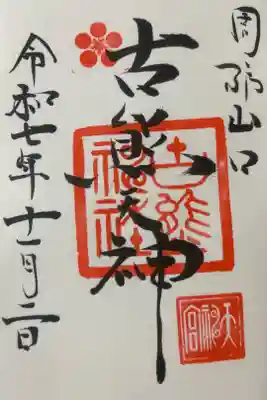 周防山口
古熊天神
古熊神社
令和七年十一月二日